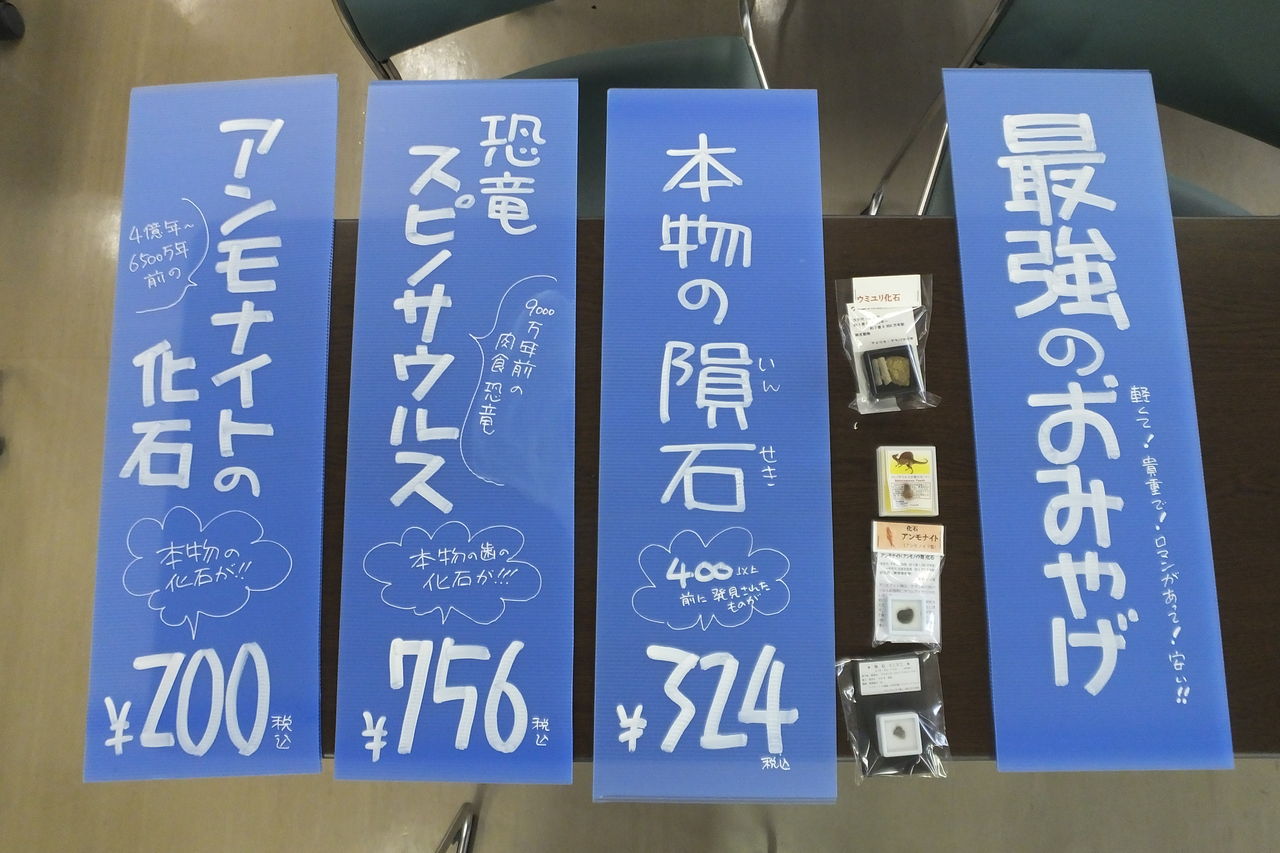 最強のおみやげ
軽くて!貴重で!ロマンがあって!安い!!
本物の隕石
いん
せき
400以上
前に発見された
ものが
¥324
税込
恐竜
スピノサウルス
9000
万年前の
肉食恐竜
本物の歯の
化石が!!!
¥756
税込
アンモナイトの
化石
4億年~
6500万年
前の
本物の
化石が!!
¥200
税込
ウミユリ化石
化石
アンモナイト